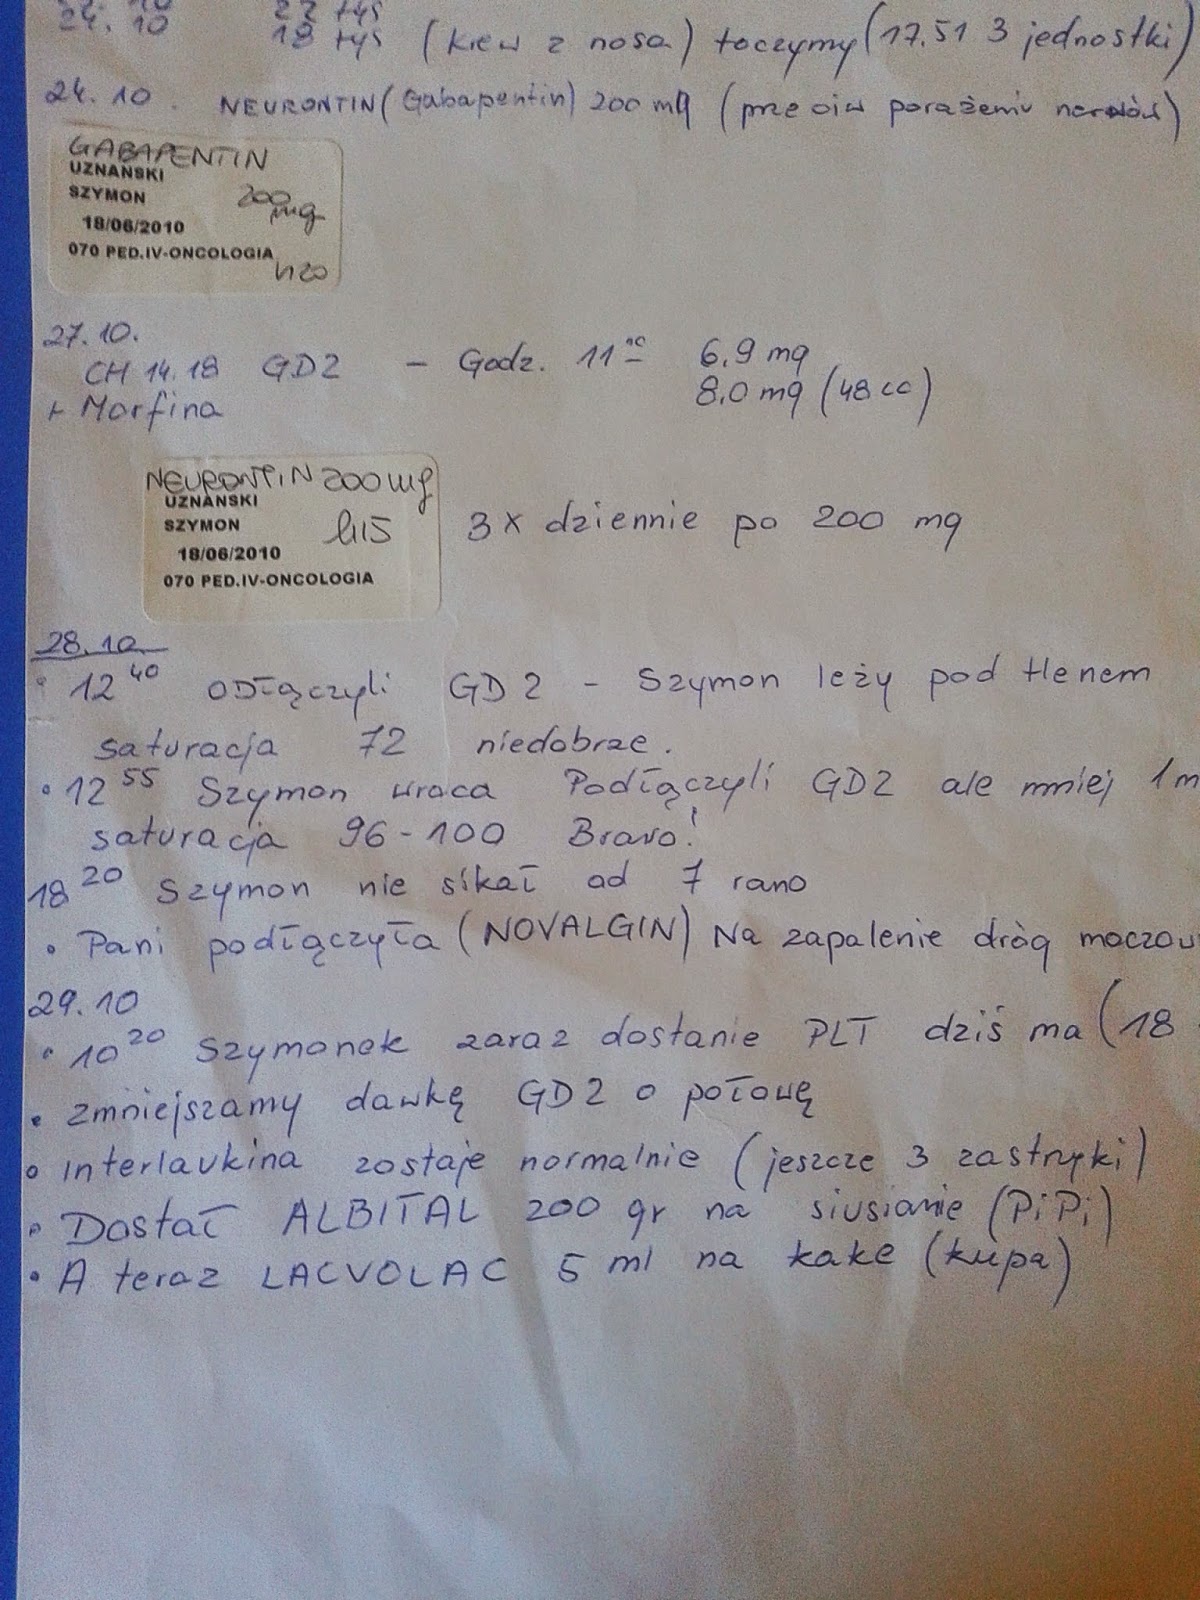 24. 10 18 tys (krew z nosa) toczymy (17.51 3 jednostki)
24. 10. NEURONTIN (Gabapentin) 200 mg (przeciw porażeniu nerwów)
GABAPENTIN
UZNANSKI
SZYMON 200 mg
18/06/2010
070 PED.IV-ONCOLOGIA
h20
27. 10.
CH 14.18 GD2 - Godz. 11 6,9 mg
+ Morfina 8,0 mg (48 cc)
NEURONTIN 200 mg
UZNANSKI
SZYMON h15
18/06/2010
070 PED.IV-ONCOLOGIA
3 x dziennie po 200 mg
28. 10
• 12 40 Odłączyli GD2 - Szymon leży pod tlenem
saturacja 72 niedobrze.
• 12 55 Szymon wraca Podłączyli GD2 ale mniej 1m
saturacja 96-100 Bravo!
18 20 Szymon nie sikał od 7 rano
• Pani podłączyła (NOVALGIN) Na zapalenie dróg moczow
29. 10
• 10 20 Szymonek zaraz dostanie PLT dziś ma (18
• zmniejszamy dawkę GD2 o połowę
• Interlaukina zostaje normalnie (jeszcze 3 zastrzyki)
• Dostał ALBITAL 200 gr na siusianie (PiPi)
• A teraz LACVOLAC 5 ml na kake (kupa)